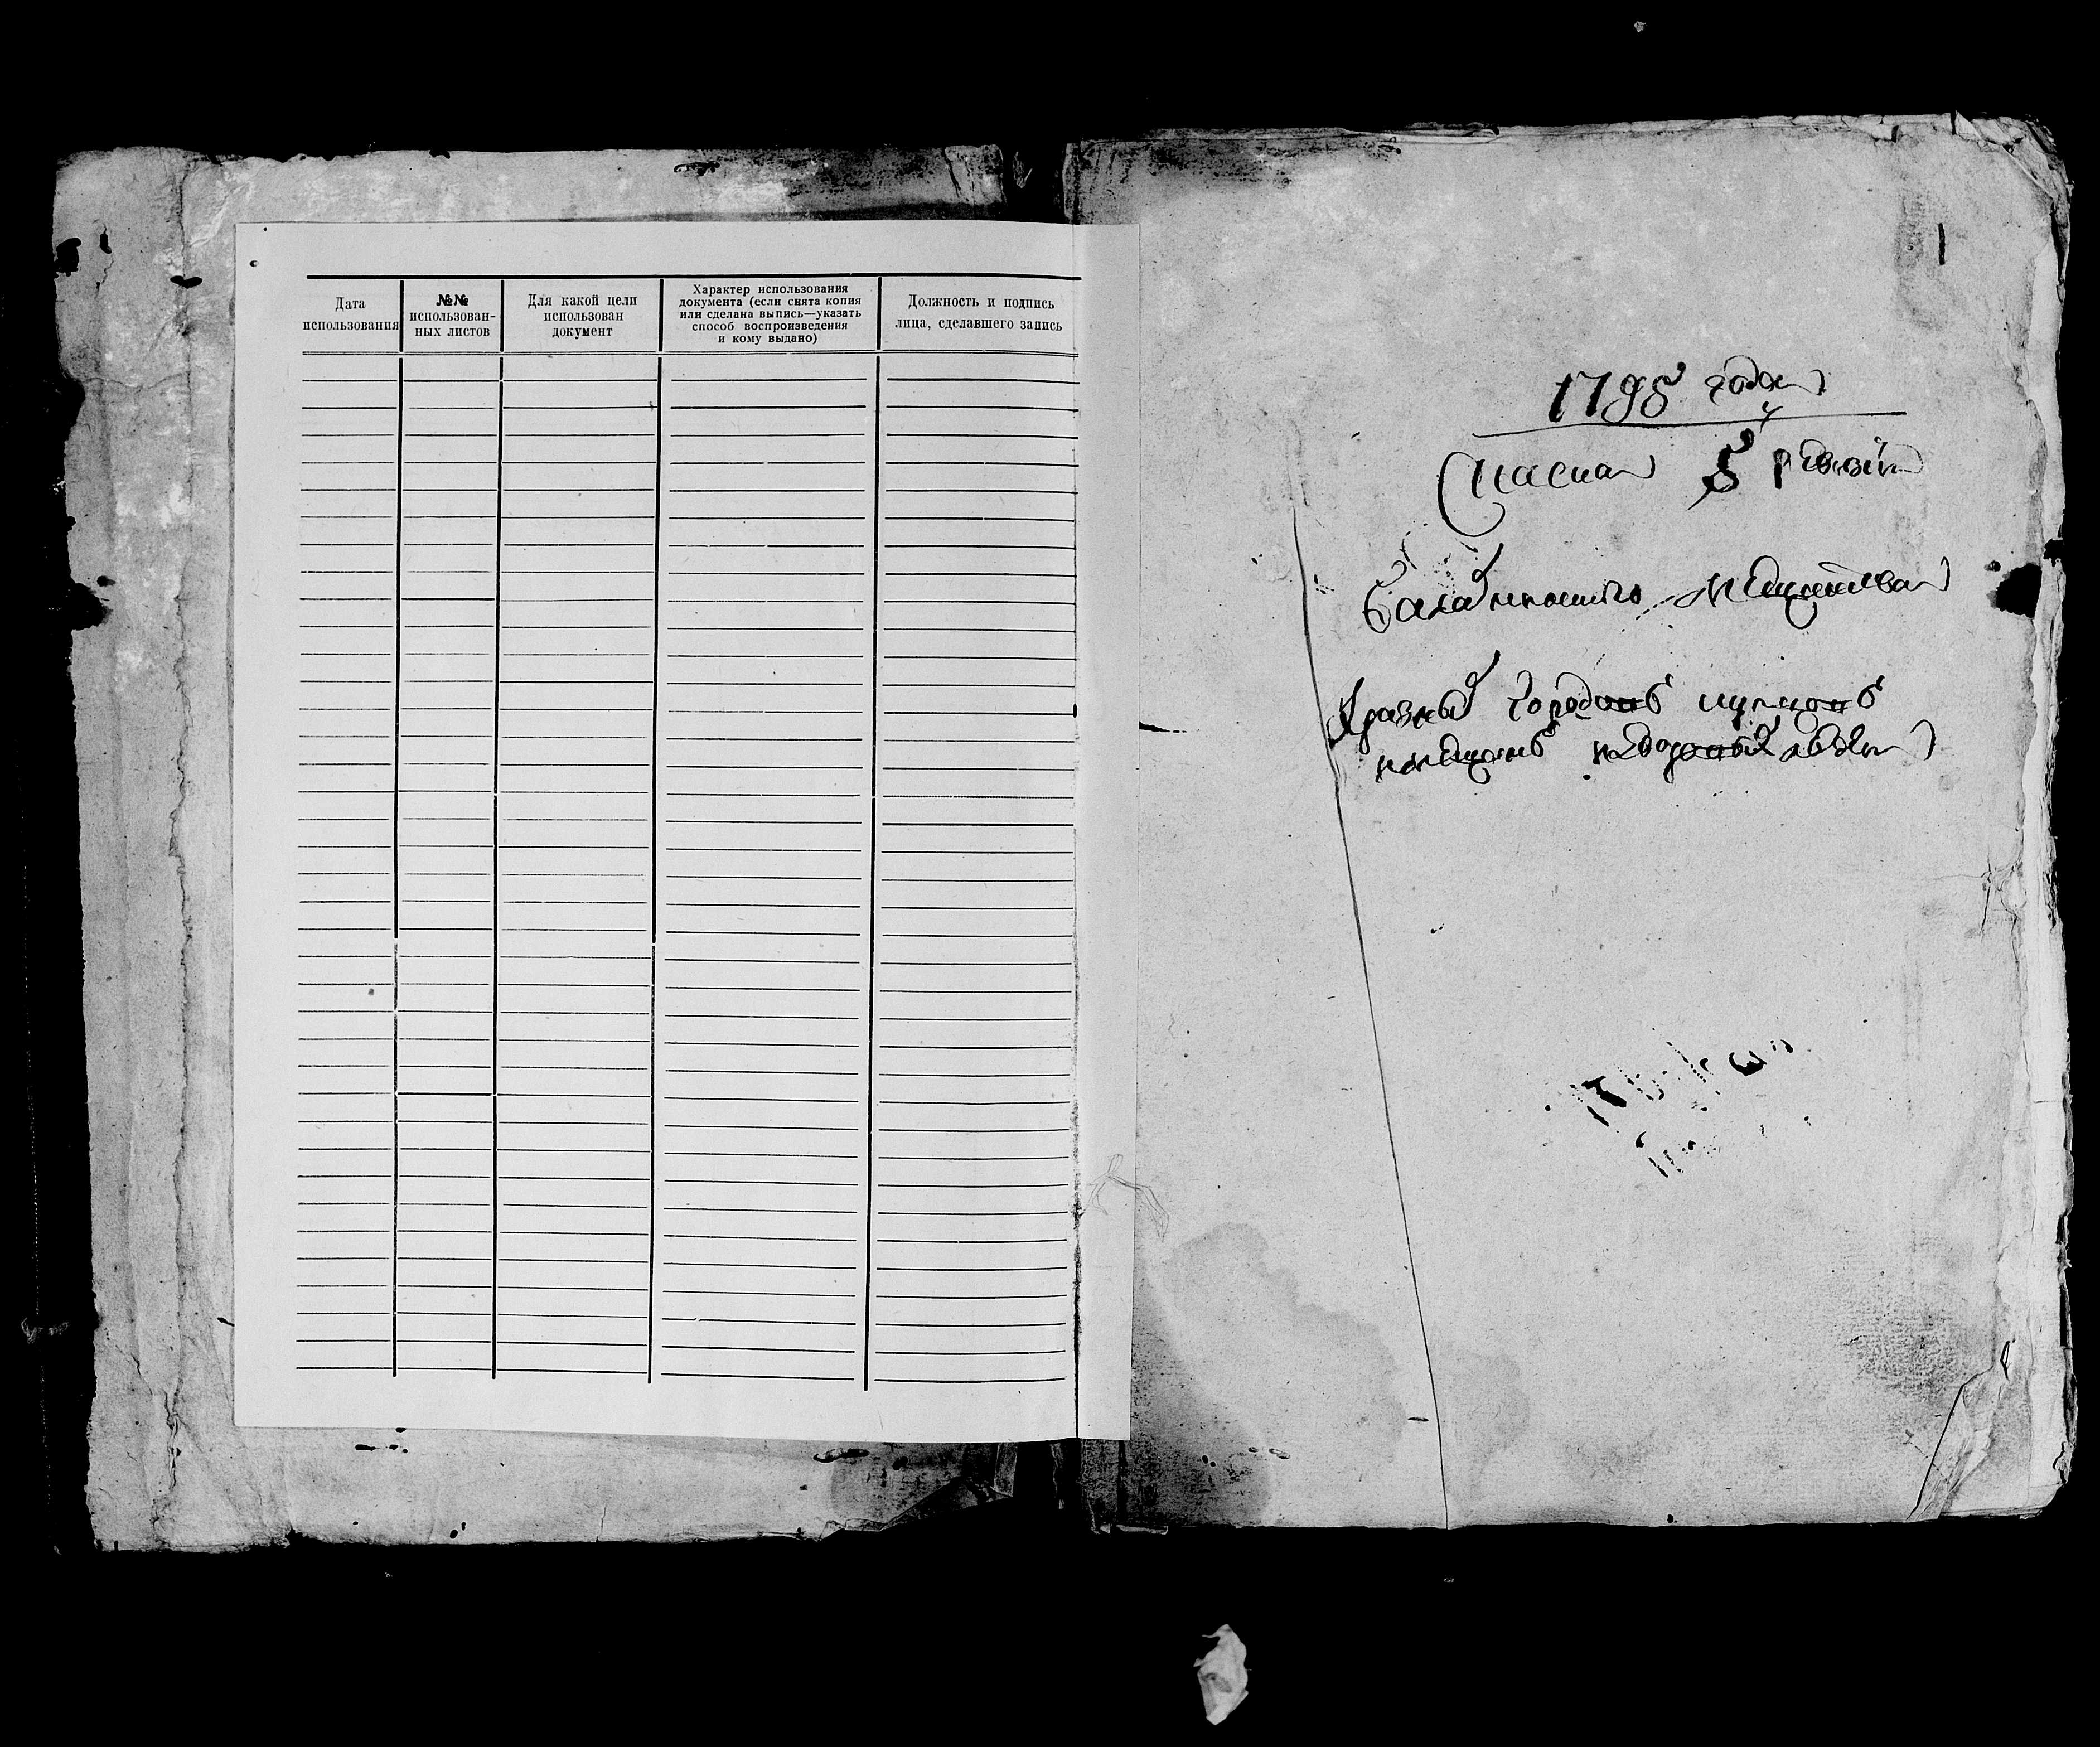 Дата использования
№№ использован-ных листов
Для какой цели использован документ
Характер использования документа (если снята копия или сделана выпись—указать способ воспроизведения и кому выдано)
Должность и подпись лица, сделавшего запись
1
1795 года
Скаска 5 ревизіи
мещанства
разныхъ городовъ купцовъ
и мещанъ